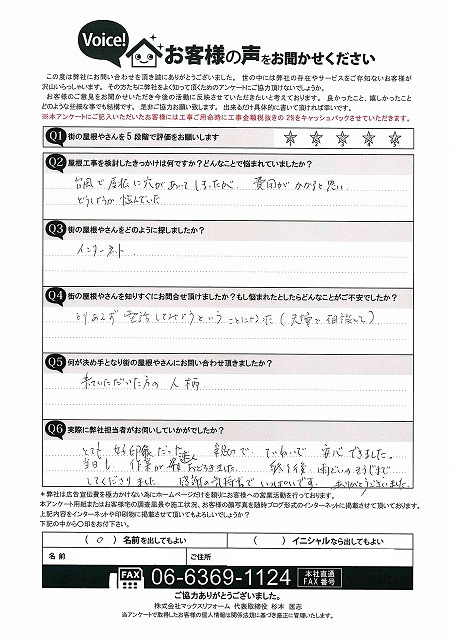 Voice!
お客様の声をお聞かせください
この度は弊社にお問い合わせを頂き誠にありがとうございました。世の中には弊社の存在やサービスをご存知ないお客様が
沢山いらっしゃいます。その方たちに弊社をよく知って頂くためのアンケートにご協力頂けないでしょうか。
お客様のご意見をお聞かせいただき今後の活動に反映させていただきたいと考えております。良かったこと、嬉しかったこと
どのような些細な事でも結構です。是非ご協力お願い致します。出来るだけ具体的に書いて頂ければ幸いです。
※本アンケートにご記入いただいたお客様には工事ご用命時に工事金額税抜きの2%をキャッシュバックさせていただきます。
Q1 街の屋根やさんを5段階で評価をお願いします
Q2 屋根工事を検討したきっかけは何ですか?どんなことで悩まれていましたか?
台風で屋根に穴があいてしまったが、費用がかかると思い
どうしようか悩んでいた
Q3 街の屋根やさんをどのように探しましたか?
インターネット
Q4 街の屋根やさんを知りすぐにお問合せ頂けましたか?もし悩まれたとしたらどんなことがご不安でしたか?
とりあえず電話してみようということになった(夫婦で相談して)
Q5 何が決め手となり街の屋根やさんにお問い合わせ頂けましたか?
来ていただいた方の人柄
Q6 実際に弊社担当者がお伺いしていかがでしたか?
とても好印象だった 親切で ていねいで 安心できました。
当日も 作業が おどろきました。 終了後 雨どいのそうじまで
してくださりました 感謝の気持ちでいっぱいです。ありがとうございました。
*弊社は広告宣伝費を極力かけない為にホームページだけを頼りにお客様への営業活動を行っております。
本アンケート用紙またはお客様宅の調査風景や施工状況、お客様の顔写真を随時ブログ形式のインターネットに掲載させて頂いております。
上記内容をインターネットや印刷物に掲載させて頂いてもよろしいでしょうか?
下記の中から〇印をお付下さい。
( ○ ) 名前を出してもよい ( ) イニシャルなら出してもよい
名前 ご住所
FAX 06-6369-1124 本社直通 FAX番号
ご協力ありがとうございました。
株式会社マックスリフォーム 代表取締役 杉本 匡志
当アンケートで取得したお客様の個人情報は関係法規に基づき厳正に管理いたします。